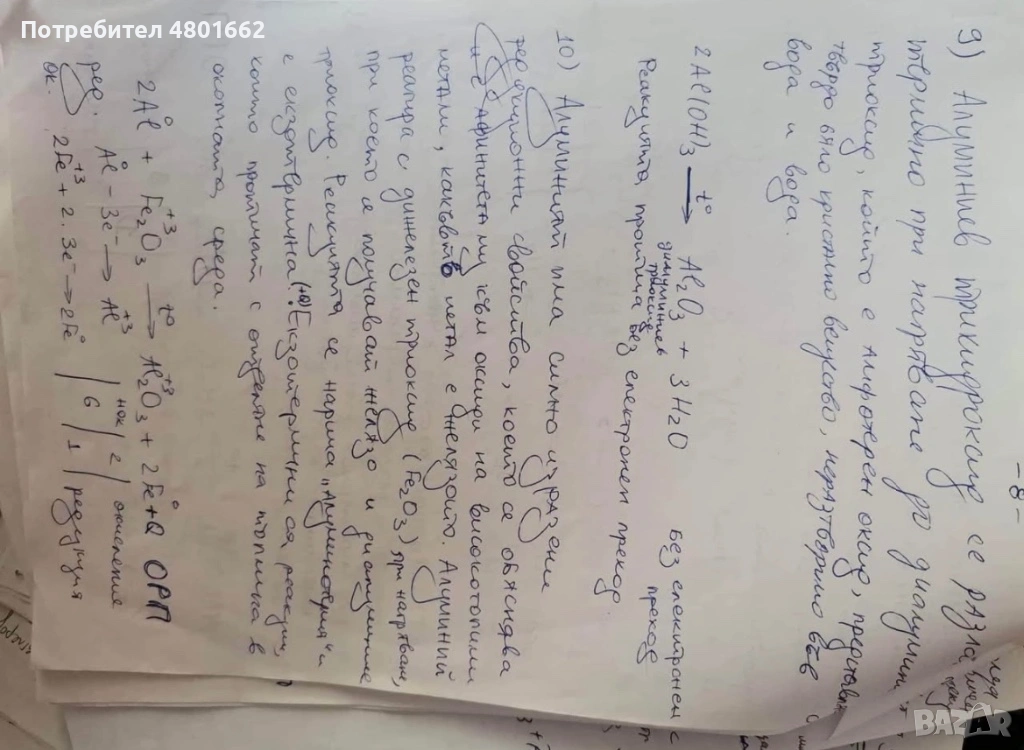 Потребител 4801662
- 8 -
9) Алуминиев трихидроксид се разла
термично при нагряване до диалумин
триоксид, който е амфотерен оксид, представля
твърдо бяло кристално вещество, неразтворимо във
вода и вода.
2Al(OH)3 t° → Al2O3 + 3H2O без електронен
диалуминиев триоксид преход
Реакцията протича без електронен преход.
10) Алуминият има силно изразени
редукционни свойства, които се обяснява
с афинитета му към оксиди на високотопими
метали, какъвто метал е желязото. Алуминий
реагира с дижелезен триоксид (Fe2O3) при нагряване,
при което се получават желязо и диалуминиев
триоксид. Реакцията се нарича „Алуминотермия" и
е екзотермична! (+Q) Екзотермични са реакции,
които протичат с отделяне на топлина в
околната среда.
2Al⁰ + Fe2⁺³O3 t° → Al2⁺³O3 + 2Fe⁰ + Q ОРП
ред. Al⁰ - 3e⁻ → Al⁺³ | нок | 2 | окисление
ок. 2Fe⁺³ + 2.3e⁻ → 2Fe⁰ | 6 | 1 | редукция
BAZAR